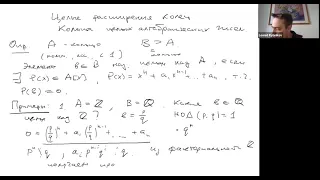 Целые расширения колец
Кольца целых алгебраических чисел
Опр. A - кольцо B ⊃ A
(комм., асс., с 1) кольцо
Элемент b ∈ B наз. целым над A, если
∃ P(x) ∈ A[x], P(x) = xⁿ + a₁xⁿ⁻¹ + ... + aₙ, т.ч.
P(b) = 0.
Примеры: 1. A = ℤ, B = ℚ. Какие b ∈ ℚ
целы над ℤ? b = p/q НОД(p,q)=1
0 = (p/q)ⁿ + a₁(p/q)ⁿ⁻¹ + ... + aₙ · qⁿ
из факториальности ℤ
получаем